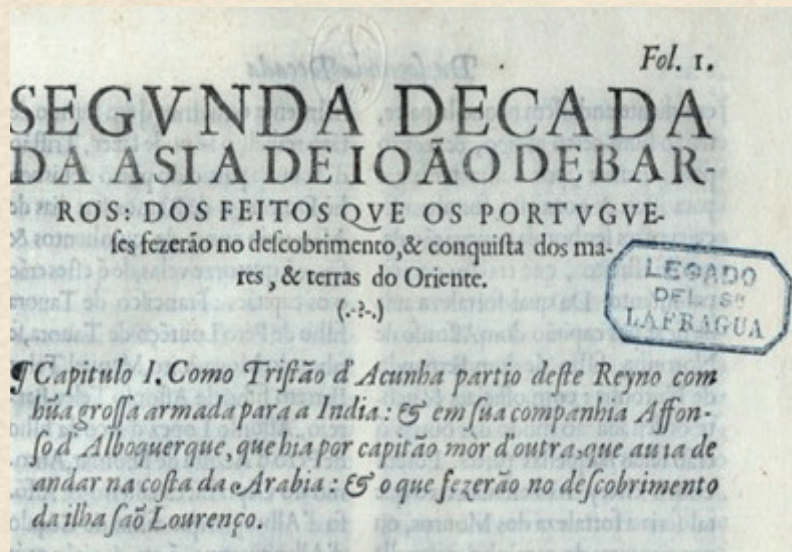 Fol. 1.
SEGVNDA DECADA
DA ASIA DE IOÃO DE BAR-
ROS: DOS FEITOS QVE OS PORTVGVE-
ſes fezerão no deſcobrimento, & conquiſta dos ma-
res, & terras do Oriente.
(.-?-.)
LEGADO
DEL Sr
LAFRAGUA
¶ Capitulo I. Como Triſtão d'Acunha partio deſte Reyno com
hũa groſſa armada para a India: & em ſua companhia Affon-
ſo d'Alboquerque, que hia por capitão mòr d'outra, que auia de
andar na coſta da Arabia: & o que fezerão no deſcobrimento
da ilha ſaõ Lourenço.